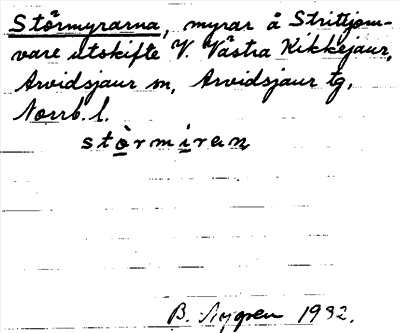 Stormyrarna, myrar å Strittjom-
vare utskifte V. Västra Kikkejaur,
Arvidsjaur sn, Arvidsjaur tg,
Norrb. l.
stòrmiran
B. Nygren 1932.